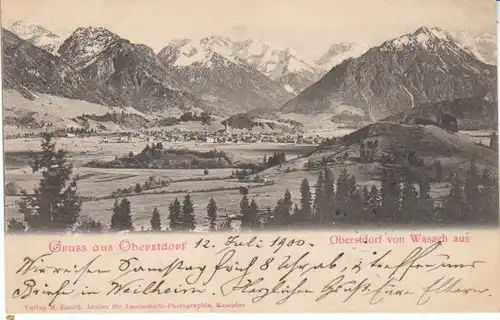 Gruss aus Oberstdorf 12. Juli 1900. Oberstdorf von Wasach aus
Wir reisen Samstag früh 8 Uhr ab, & treffen uns
Briefe in Weilheim. Herzlichen Gruß Eure Eltern.
Verlag M. Rauch, Atelier für Landschafts-Photographie, Kempten